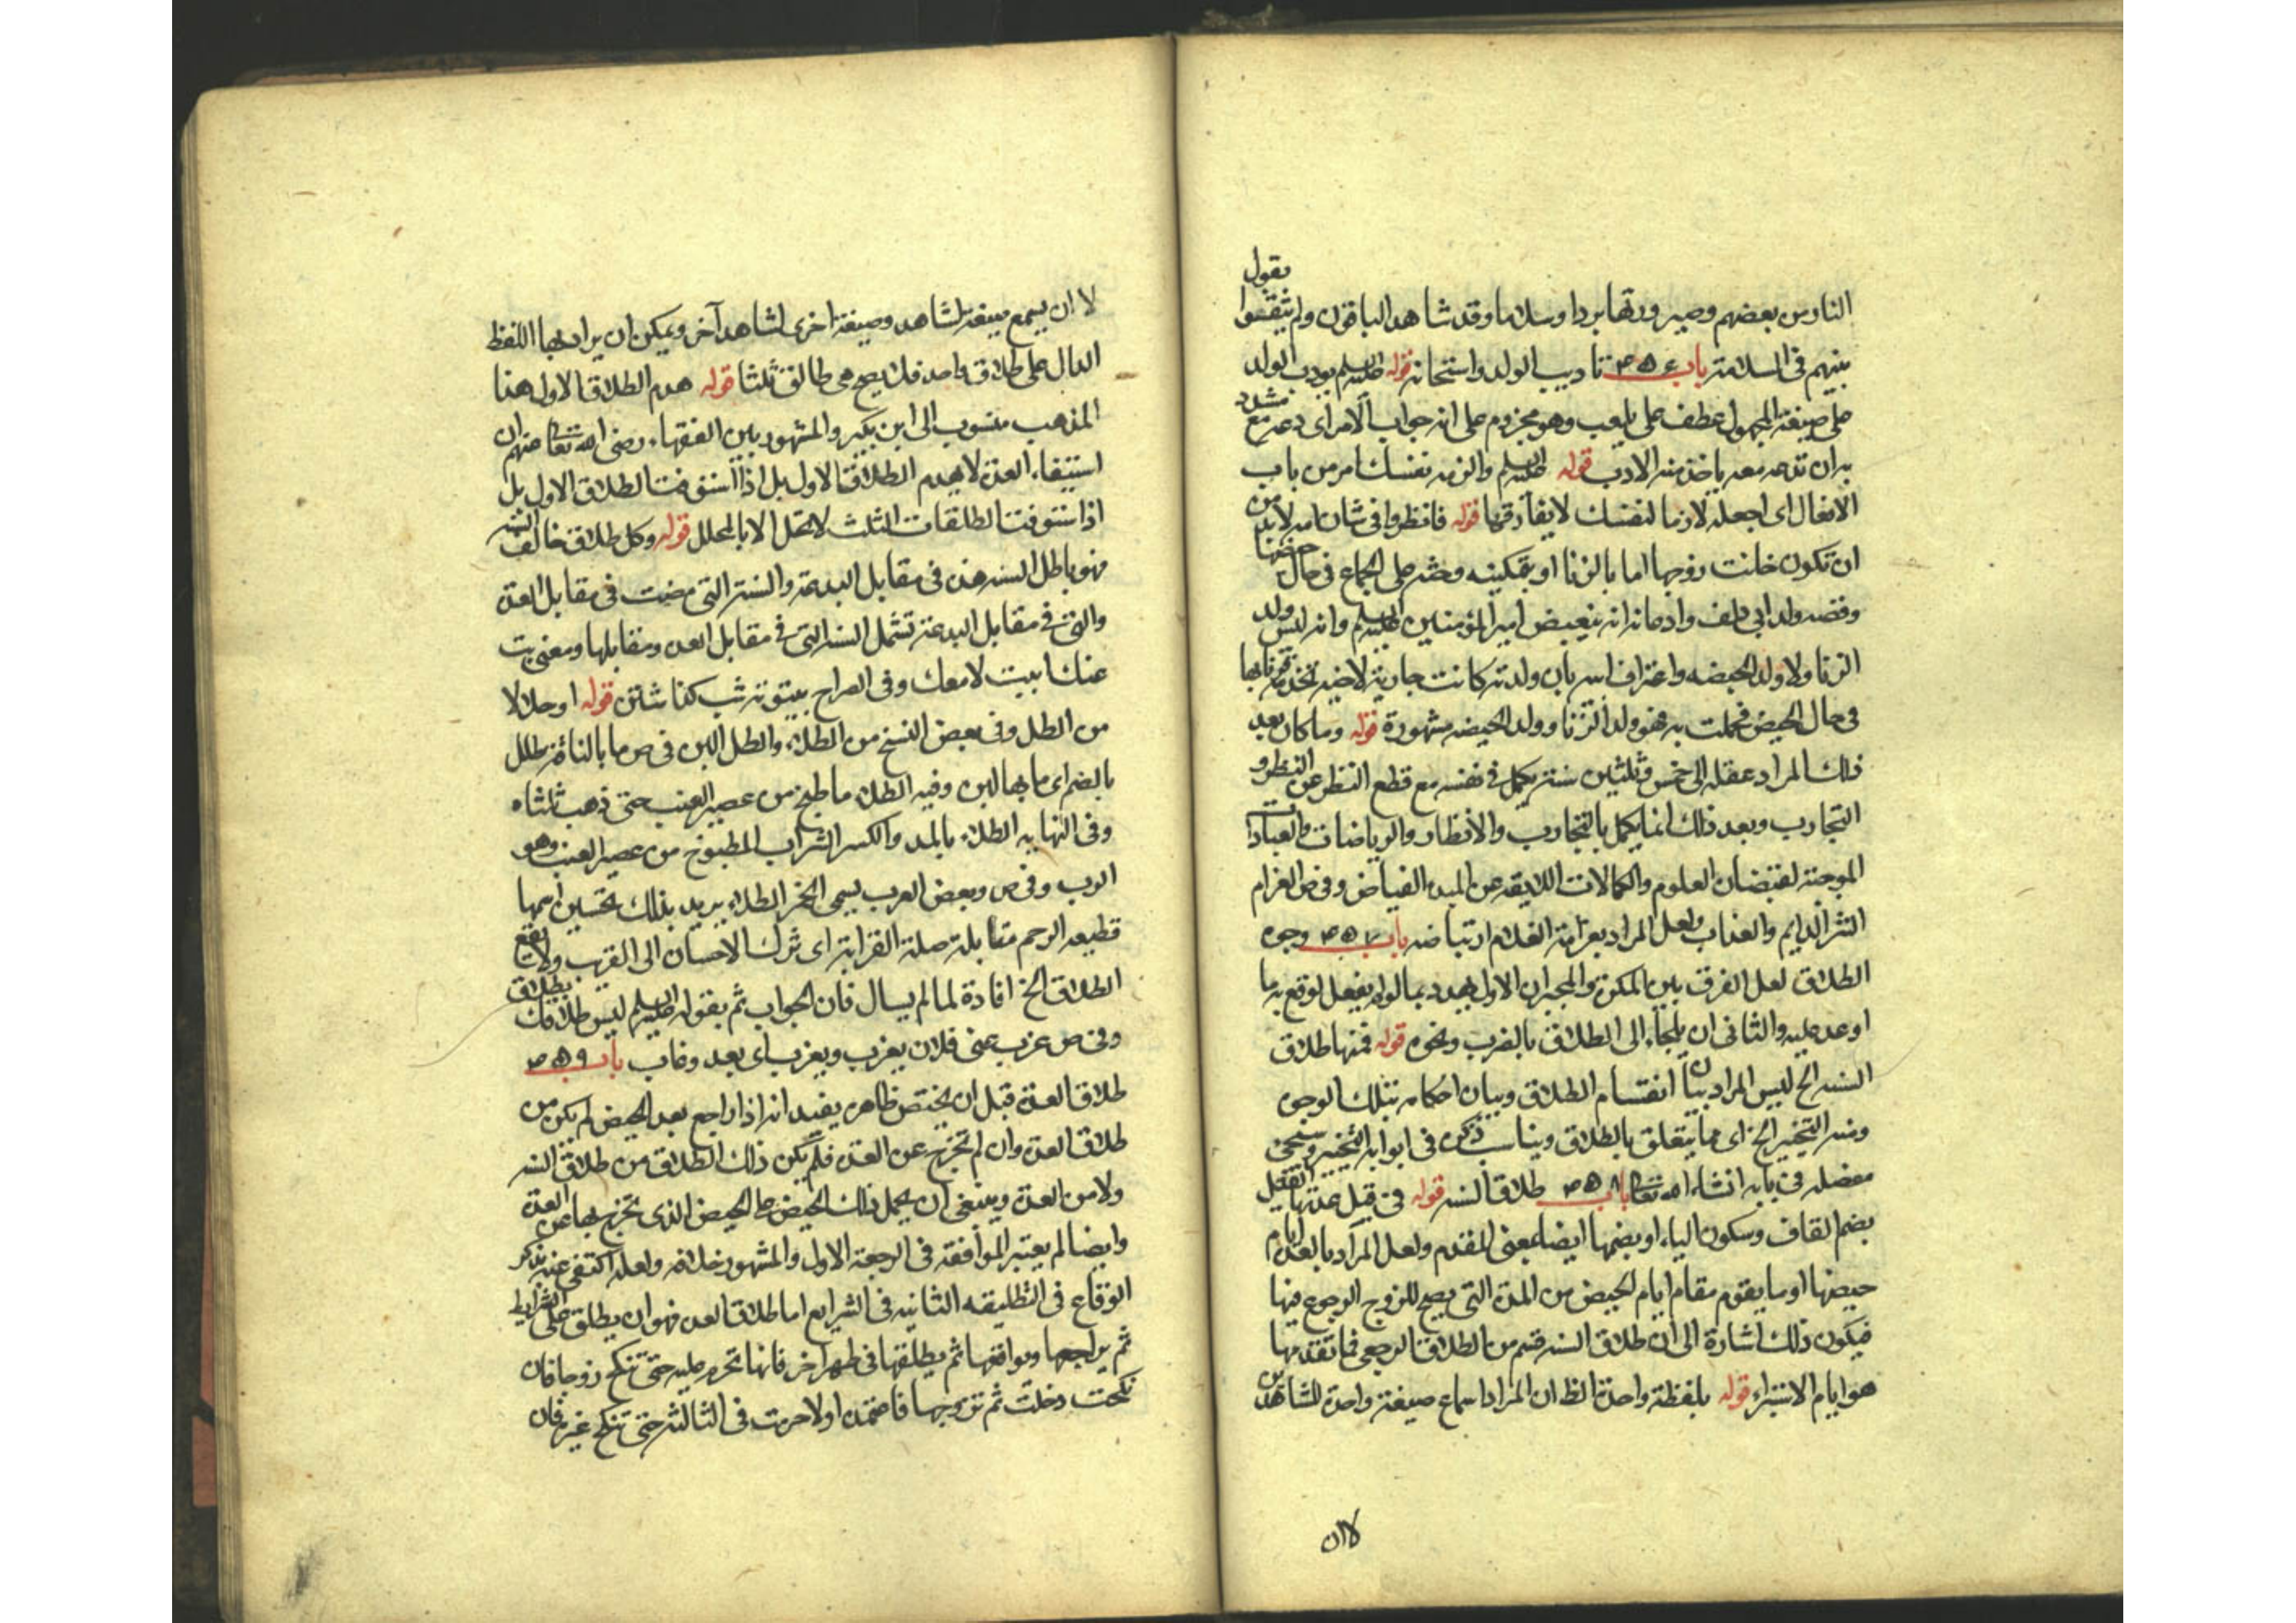 النار من بعضهم وصيرورتها بردا وسلاما وقد شاهد الباقون ولم يتفقوا بقول
بينهم في السلامة باب ٣٥٦ تاديب الولد وامتحانه قوله عليه السلم يؤدب الولد
على صيغة المجهول عطف على يلعب وهو مجزوم على انه جواب الامر اى دعه مع مشدد
به ان تدعه معه ياخذ منه الادب قوله عليه السلم والزمه نفسك امر من باب
الافعال اى اجعله لازما لنفسك لا يفارقها قوله فانظروا في شان امه لا بد من
ان تكون خانت زوجها اما بالزنا او بتمكينه وحثه على الجماع في حال حيضها
وقصه ولد ابي دلف وادعائه انه يبغض امير المؤمنين عليه السلم وانه ليس ولد
الزنا ولا ولد الحيضه واعتراف ابيه بان ولدته كانت جارية لاخيه فزنا بها
في حال الحيض فحملت به فهو ولد الزنا وولد الحيضه مشهورة قوله وما كان بعد
ذلك المراد عقله الى خمس وثلثين سنة يكمل في نفسه مع قطع النظر عن النظر و
التجارب وبعد ذلك انما يكمل بالتجارب والانظار والرياضات والعبادات
الموجبة لفيضان العلوم والكمالات اللايقه عن المبدء الفياض وفي ص الغرام
الشر الدايم والعذاب ولعل المراد بعرامة الغلام ارتياضه باب ٣٥٧ وجوه
الطلاق لعل الفرق بين المكره والمجبر ان الاول يهدد بما لو لم يفعل لوقع به ما
اوعد عليه والثاني ان يلجاء الى الطلاق بالضرب ونحوه قوله فمنها طلاق
السنه الخ ليس المراد بيان انقسام الطلاق وبيان احكامه بتلك الوجوه
ومنه التخيير الخ اى مما يتعلق بالطلاق ويناسب ذكره في ابوابه التخيير وسيجئ
مفصله في بابه انشاء الله تعالى باب ٣٥٨ طلاق السنه قوله في قبل عدتها القبل
بضم القاف وسكون الباء او بضمها ايضا بمعنى المقدم ولعل المراد بالعدة ايام
حيضها او ما يقوم مقام ايام الحيض من المدة التي يصح للزوج الرجوع فيها
فيكون ذلك اشارة الى ان طلاق السنه قسم من الطلاق الرجعي فما تقدمها
هو ايام الاستبراء قوله بلفظة واحدة الظ ان المراد اسماع صيغة واحدة للشاهدين
لا ان
لا ان يسمع صيغة لشاهد وصيغة اخرى لشاهد آخر ويمكن ان يراد بها اللفظ
الدال على طلاق واحد فلا يصح هى طالق ثلثا قوله هدم الطلاق الاول هذا
المذهب منسوب الى ابن بكير والمشهور بين الفقهاء رضى الله تعالى عنهم ان
استيفاء العدة لا يهدم الطلاق الاول بل اذا استوفت الطلاق الاول بل
اذا ستوفت الطلقات الثلث لا تحل الا بالمحلل قوله وكل طلاق خالف السنه
فهو باطل السنه هذه في مقابل البدعة والسنة التي مضت في مقابل العدة
والتي في مقابل البدعة تشمل السنه التي في مقابل العدة ومقابلها ومعنى بت
عنك ابيت لا معك وفي الصراح بيتوته شب كذاشتن قوله او حلالا
من الطل وفي بعض النسخ من الطلاء والطل اللبن في ص ما بالناقة طل
بالضم اى ما بها لبن وفيه الطلاء ما طبخ من عصير العنب حتى ذهب ثلثاه
وفي النهايه الطلاء بالمد والكسر الشراب المطبوخ من عصير العنب وهو
الرب وفي ص وبعض العرب يسمى الخمر الطلاء يريد بذلك تحسين اسمها
قطيعه الرحم مقابلة صلة القرابة اى ترك الاحسان الى القريب ولا يقع
الطلاق الخ افادة لما لم يسال فان الجواب ثم بقوله عليه السلم ليس طلاقك بطلاق
وفي ص عزب عنى فلان يعزب ويعزب اى بعد وغاب باب ٣٥٩
طلاق العدة قبل ان تحيض ظاهره يفيد انه اذا راجع بعد الحيض لم يكن من
طلاق العدة وان لم تخرج عن العدة فلم يكن ذلك الطلاق من طلاق السنه
ولا من العدة وينبغى ان يحمل ذلك الحيض على الحيض الذى تخرج بها عن العدة
وايضا لم يعتبر المواقعة في الرجعة الاول والمشهور خلافه ولعله اكتفى عنه بذكر
الوقاع في التطليقه الثانيه في الشرايع اما طلاق العدة فهو ان يطلق على الشرايط
ثم يراجعها ويواقعها ثم يطلقها في طهر اخر فانها تحرم عليه حتى تنكح زوجا فان
نكحت وخلت ثم تزوجها فاعتمد اولا حرمت في الثالثة حتى تنكح غيره فان